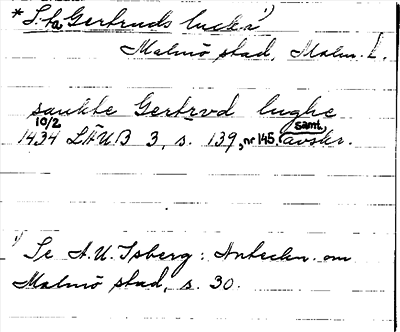 * S:ta Gertruds lucka 1)
Malmö stad, Malm. L.
sankte Gertrvd lughe
10/2 samt.
1434 LÄUB 3, s. 139, nr 145. (avskr.
1) Se A.U. Isberg: Anteckn. om
Malmö stad, s. 30.